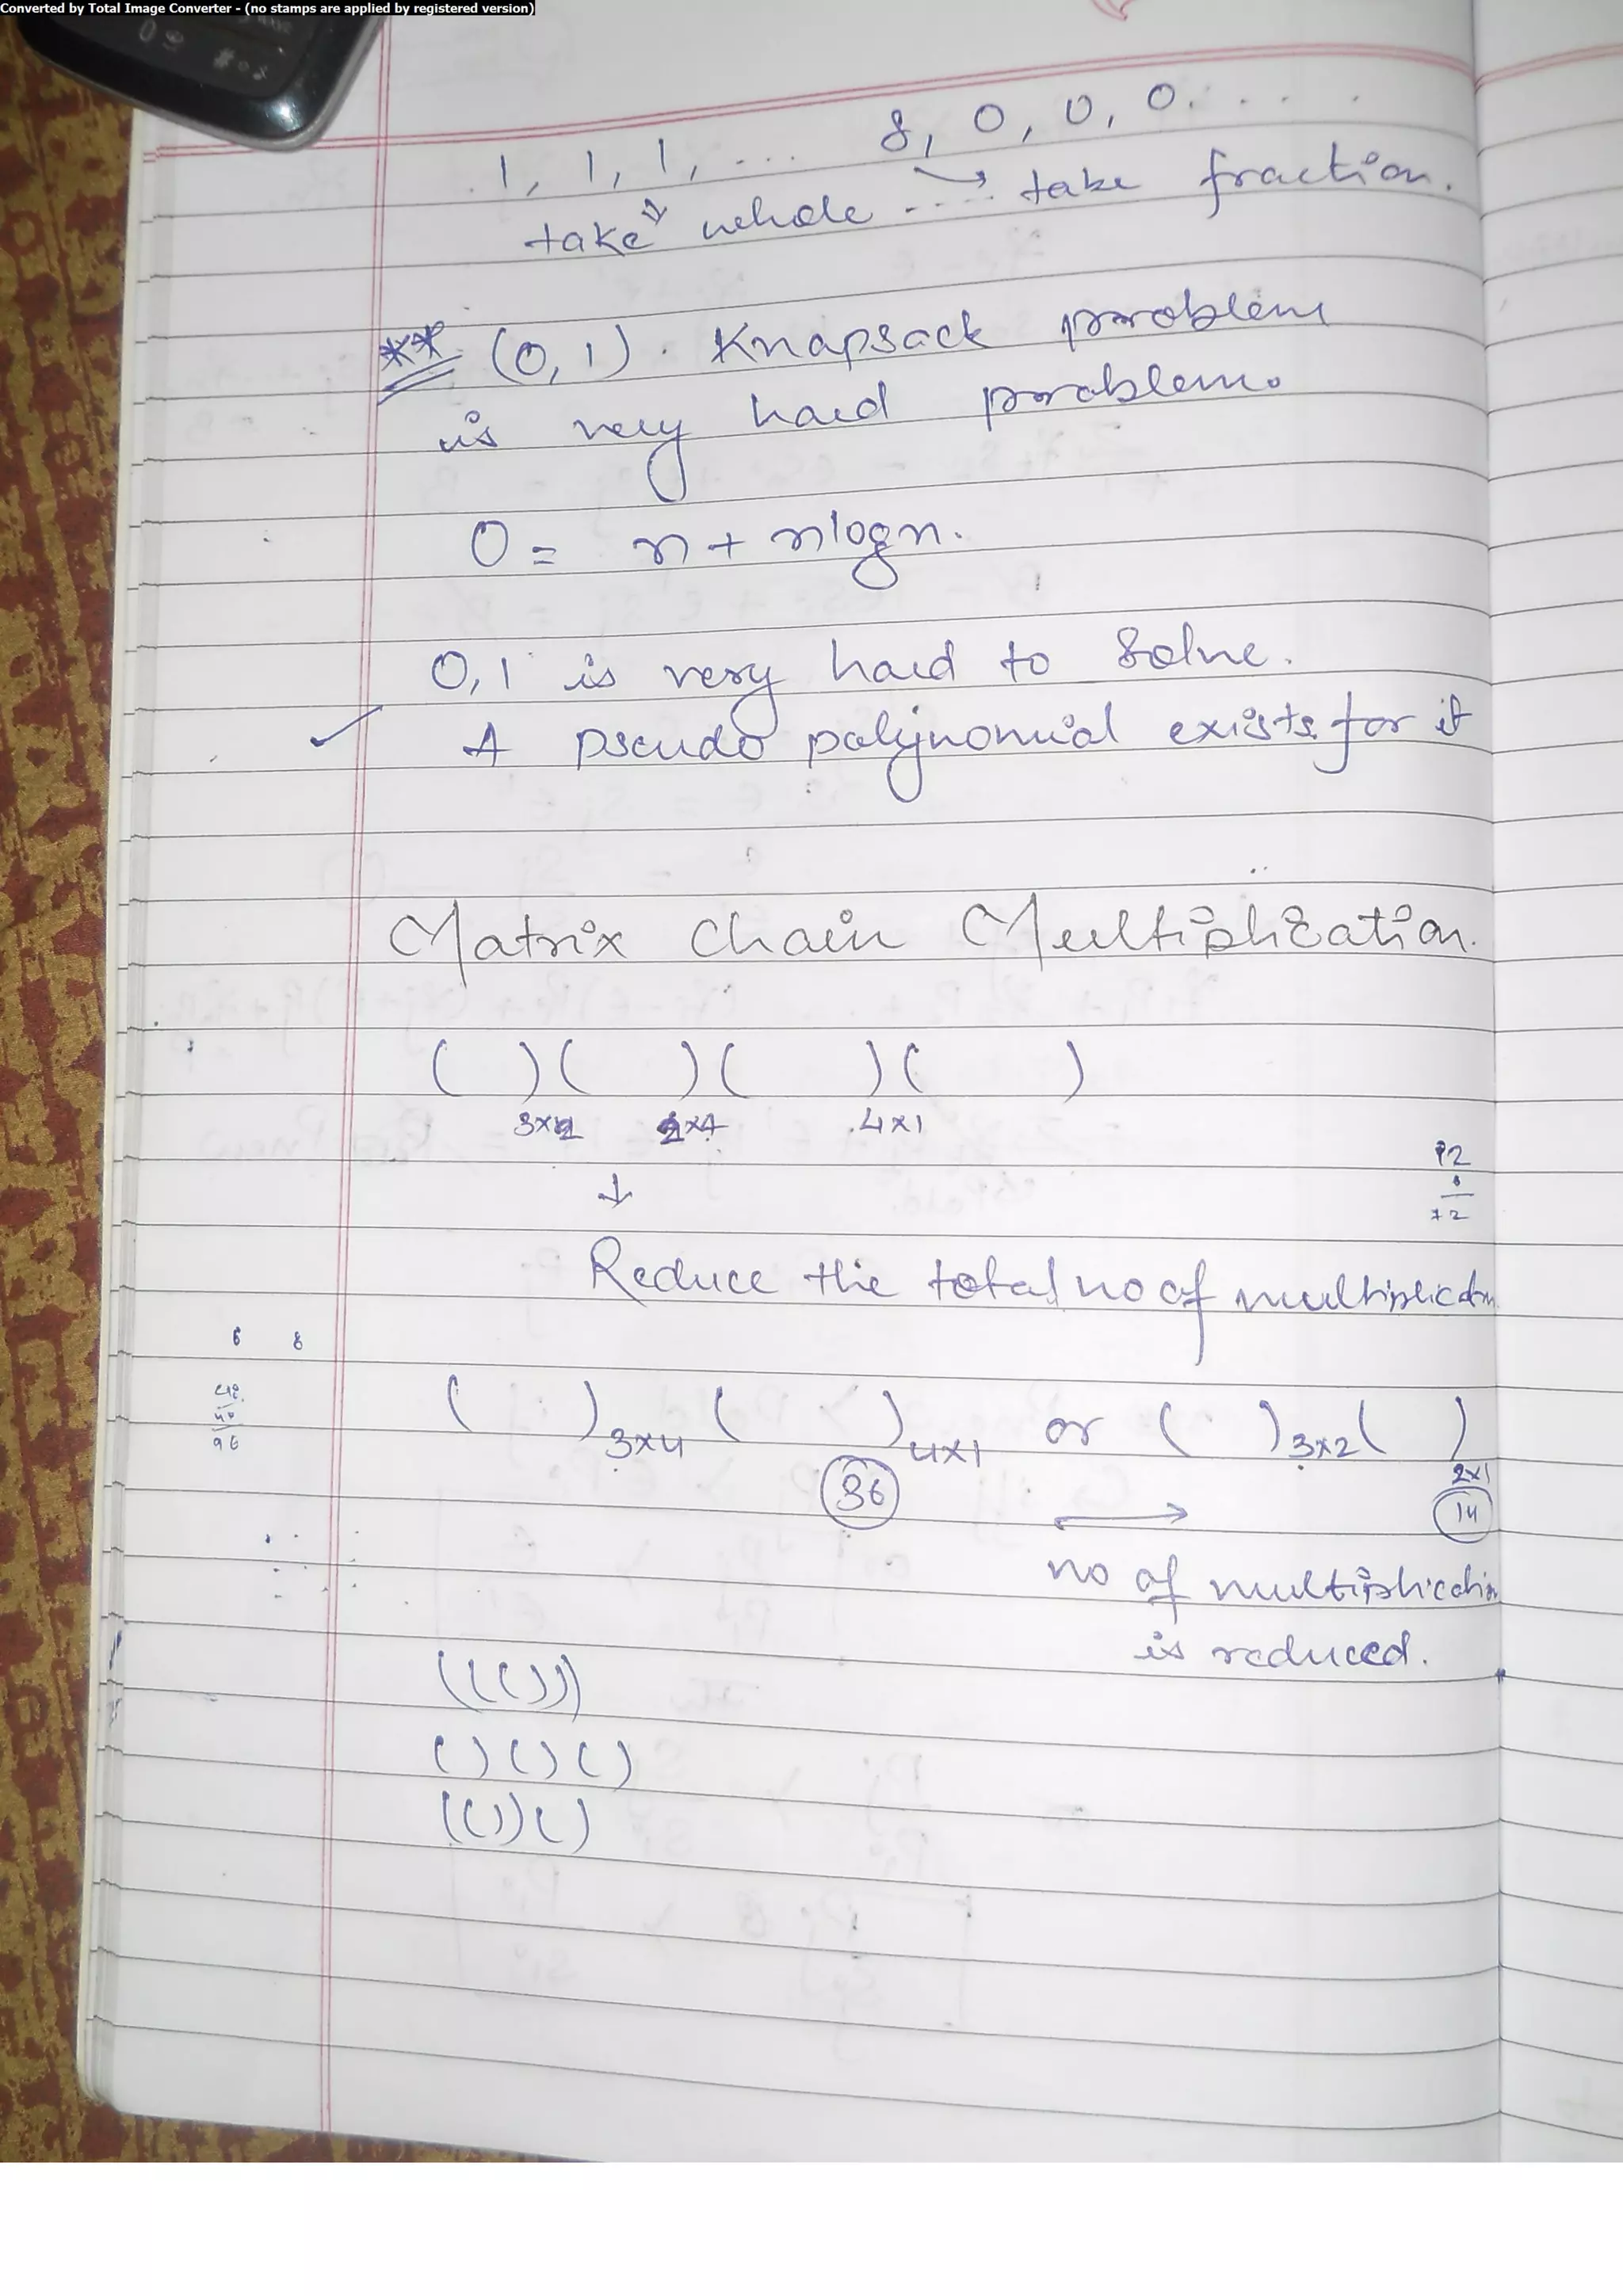 Converted by Total Image Converter - (no stamps are applied by registered version)
1, 1, 1, ... 8, 0, 0, 0. . . .
take whole .... take fraction.
** (0, 1). Knapsack problem
is very hard problem.
O = n + nlogn.
0,1 is very hard to solve.
A pseudo polynomial exists for it
Matrix Chain Multiplication.
( ) ( ) ( ) ( )
3x2 2x4 4x1
↓
Reduce the total no of multiplication
6 8
( )3x4 ( )4x1 or ( )3x2 ( )2x1
36 → 14
no of multiplication
is reduced.
((()))
()()()
(())()